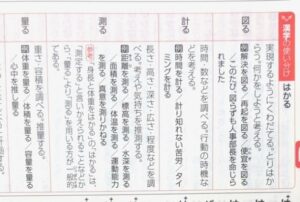 漢字の使い分け はかる
図る
実現するようにくわだてる。とりはか
らう。何かをしようと考える。
例 解決を図る／再起を図る　便宜を図る
／このたび、図らずも人事部長を命じら
れました
計る
時間・数などを調べる。行動の時機な
どを考える。
例 時間を計る／計り知れない苦労／タイ
ミングを計る
測る
長さ・高さ・深さ・広さ・程度などを調
べる。考えや気持ちを推測する。
例 距離を測る／標高を測る／水深を測る
／面積を測る／体温を測る／運動能力
を測る／真意を測りかねる
参考 「身長と体重をはかる」の「はかる」は、
「測定する」と言いかえられることなどか
ら、「量る」より「測る」を用いる方が一般的
である。
量る
重さ・容積を調べる。推量する。
例 体重を量る／体積を量る／容積を量る
／心中を推し量る